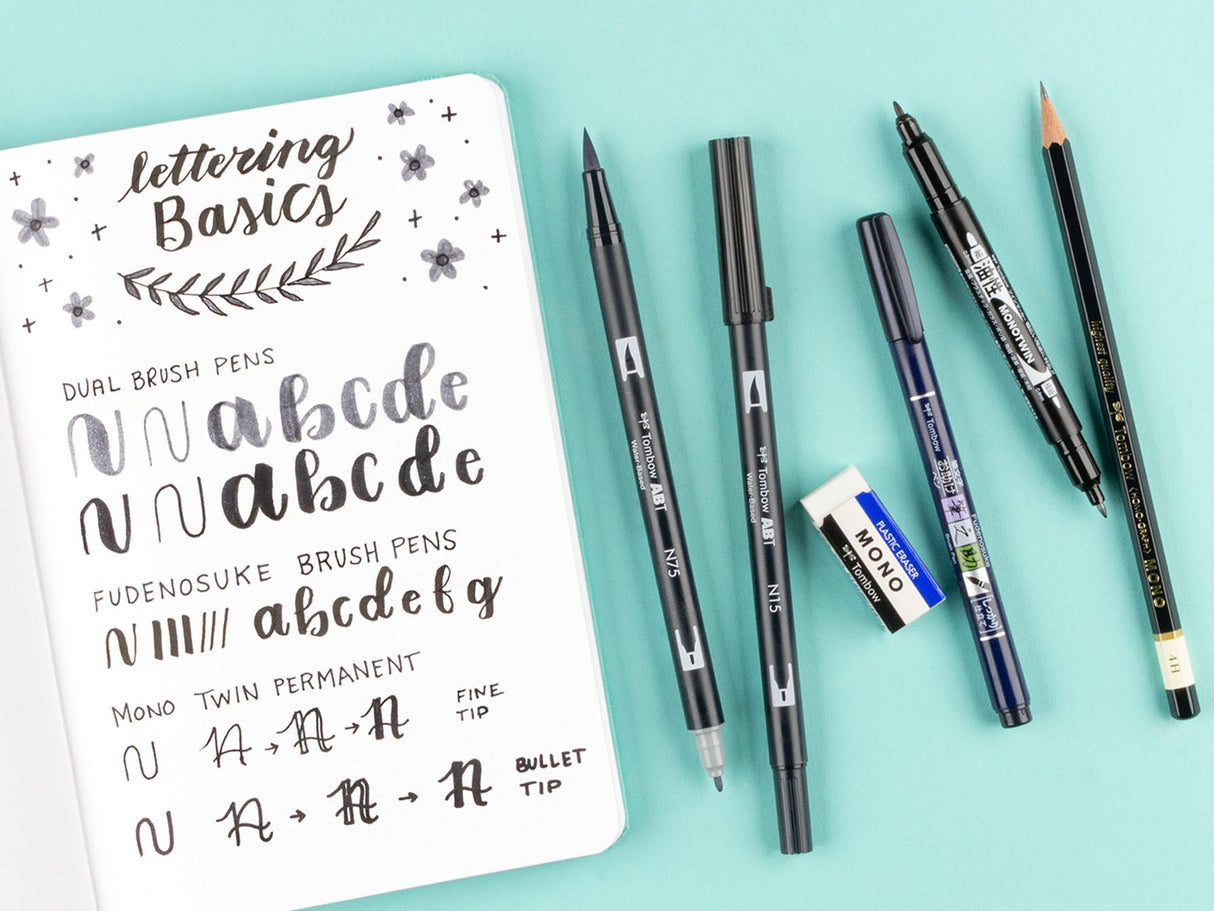 lettering
Basics
DUAL BRUSH PENS
N N abcde
N N abcde
FUDENOSUKE BRUSH PENS
N abcdefg
MONO TWIN PERMANENT
N N → N → N FINE TIP
N N → N → N BULLET TIP
Tombow ABT
Water-Based
N75
Tombow ABT
Water-Based
N15
PLASTIC ERASER
MONO
Tombow
Tombow
Fudenosuke
MONOTWIN
Highest quality
Tombow <HOMO-GRAPH> MONO
4H